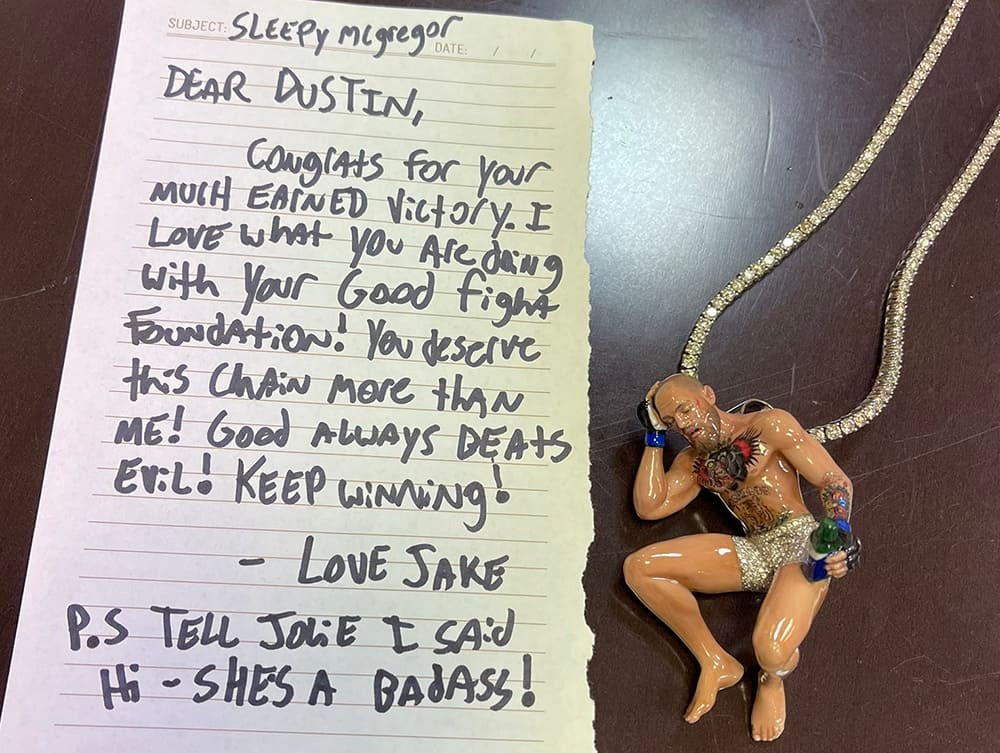 SUBJECT: SLEEPY McgregoR
DATE: / /
DEAR DUSTIN,
Congrats for your
MUCH EARNED Victory. I
LOVE what you Are doing
with your Good fight
Foundation! You deserve
this Chain more than
ME! Good ALWAYS BEATS
EViL! KEEP winning!
- LOVE JAKE
P.S TELL JOLiE I SAid
Hi - SHE'S A BAdASS!